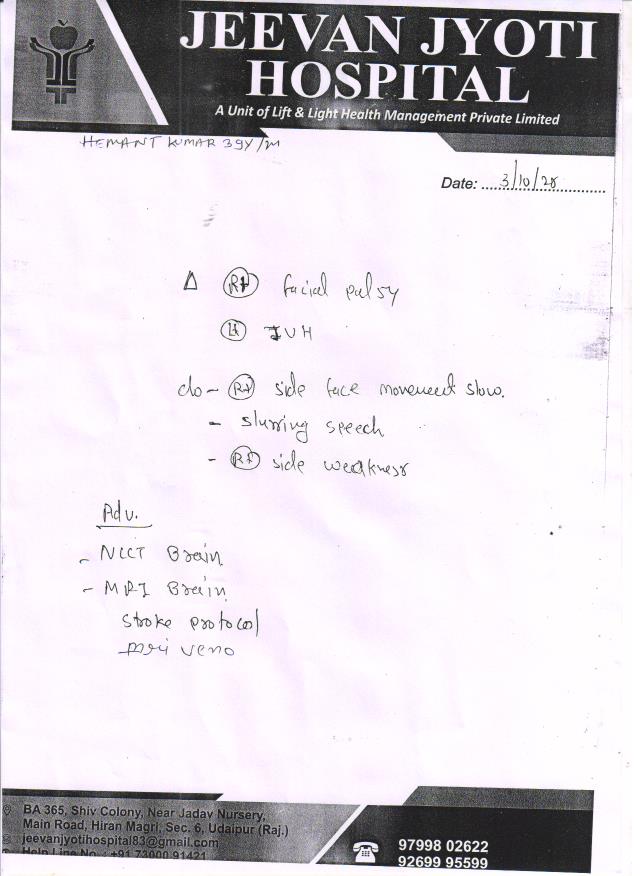 JEEVAN JYOTI
HOSPITAL
A Unit of Lift & Light Health Management Private Limited
HEMANT KUMAR 39Y/M
Date: 3/10/25
Δ Rt facial palsy
Lt IVH
c/o - Rt side face movement slow.
- slurring speech
- Rt side weakness
Adv.
- NCCT Brain
- MRI Brain
stroke protocol
MRI veno
BA 365, Shiv Colony, Near Jadav Nursery,
Main Road, Hiran Magri, Sec. 6, Udaipur (Raj.)
jeevanjyotihospital83@gmail.com
Help Line No. : +91 73000 91421
97998 02622
92699 95599